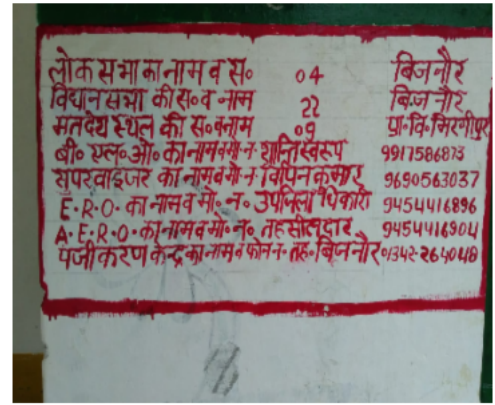 लोक सभा का नाम व स० ०4 बिजनौर
विधान सभा की स० व नाम 22 बिजनौर
मतदेय स्थल की स० वनाम ०9 प्रा०वि०मिरजीपुर
बी० एल० ओ० का नाम व मो० न० शान्ति स्वरुप 9917586873
सुपरवाइजर का नाम व मो० न० विपिन कुमार 9690563037
E.R.O. का नाम व मो० न० उपजिलाधिकारी 9454416896
A.E.R.O. का नाम व मो० न० तहसीलदार 9454416904
पंजीकरण केन्द्र का नाम व फोन न० तह० बिजनौर 01342-264048